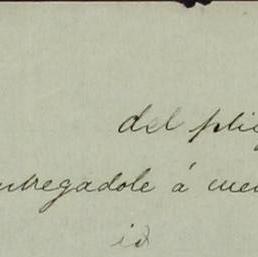 del plie
ntregadole á me
id